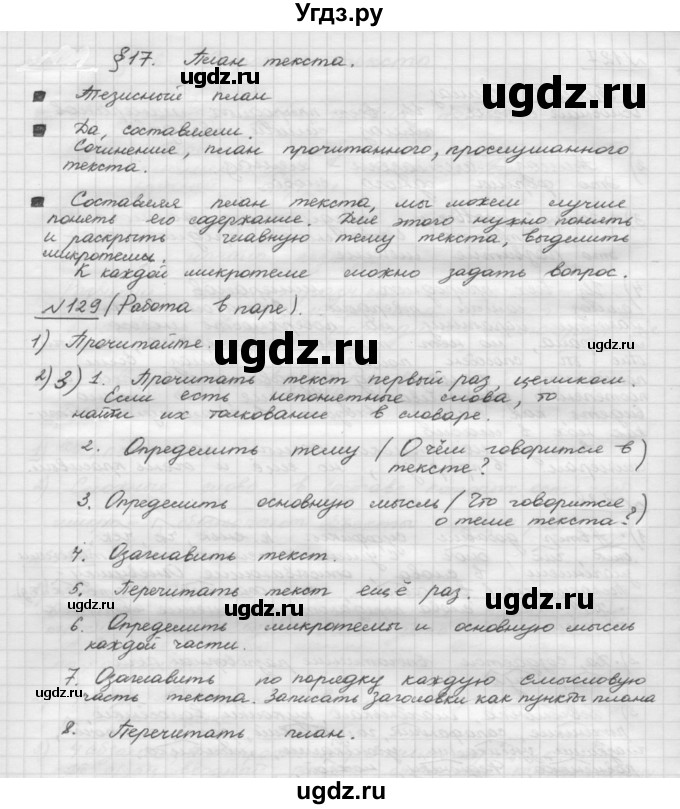 Угдз.ру
§17. План текста.
ugdz.ru
ugdz.ru
Тезисный план
ugdz.ru
Да, составляли.
Сочинение, план прочитанного, прослушанного
текста.
Составляя план текста, мы можем лучше
понять его содержание. Для этого нужно понять
и раскрыть главную тему текста, выделить
микротемы.
К каждой микротеме можно задать вопрос.
№129 (Работа в паре).
1) Прочитайте.
ugdz.ru
ugdz.ru
2) 3) 1. Прочитать текст первый раз, целиком.
Если есть непонятные слова, то
найти их толкование в словаре.
2. Определить тему (О чём говорится в
тексте?)
3. Определить основную мысль (Что говорится
о теме текста?)
4. Озаглавить текст.
5. Перечитать текст ещё раз.
ugdz.ru
ugdz.ru
ugdz.ru
6. Определить микротемы и основную мысль
каждой части.
7. Озаглавить по порядку каждую смысловую
часть текста. Записать заголовки как пункты плана
ugdz.ru
8. Перечитать план.
ugdz.ru
ugdz.ru